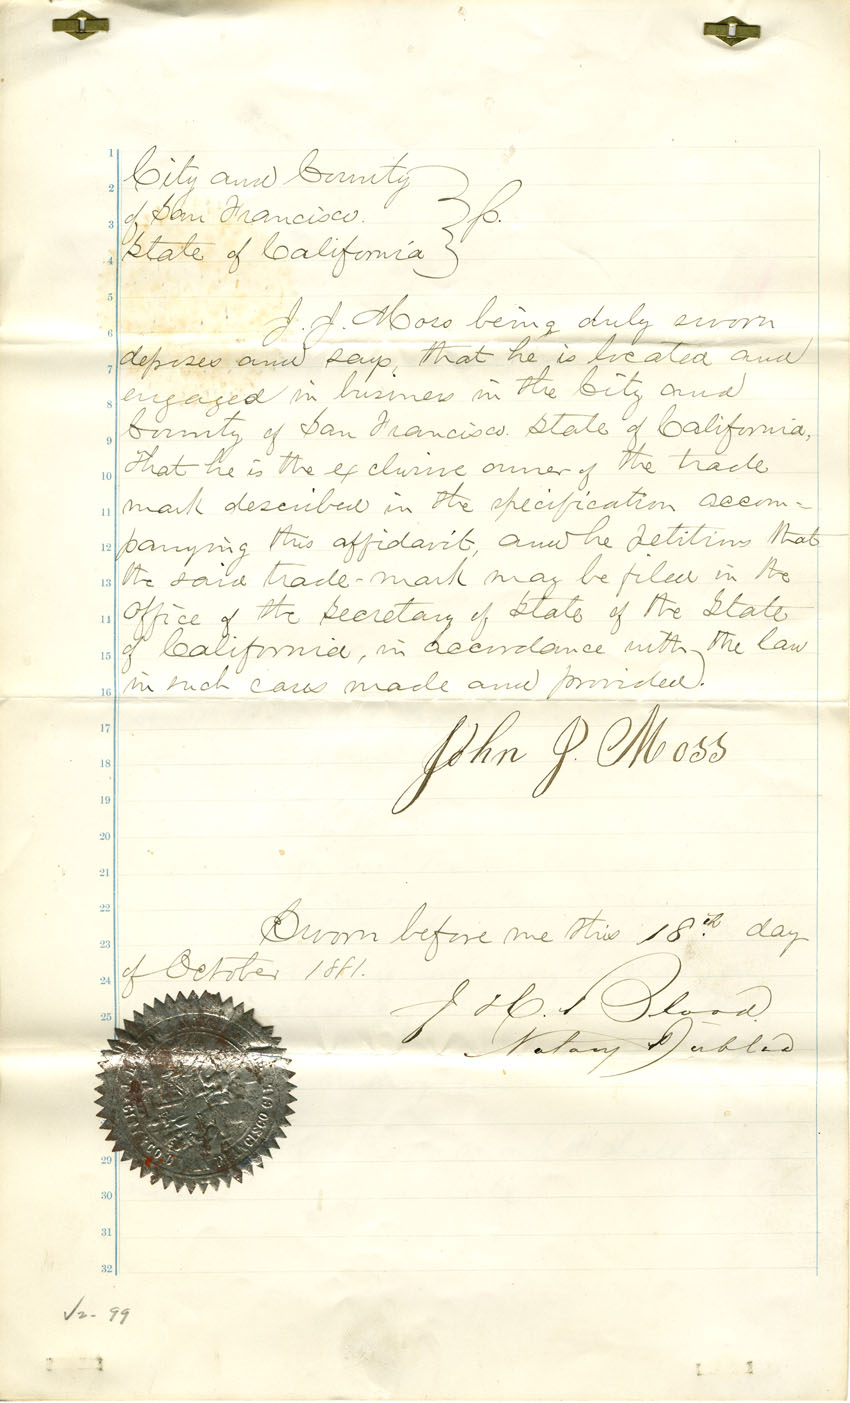 City and County
of San Francisco.
State of California
J. J. Moss being duly sworn
deposes and says, that he is located and
engaged in business in the City and
County of San Francisco. State of California,
that he is the exclusive owner of the trade
mark described in the specification accom-
panying this affidavit, and he petitions that
the said trade-mark may be filed in the
office of the Secretary of State of the State
of California, in accordance with the law
in such cases made and provided.
John J. Moss
Sworn before me this 18th day
of October 1881.
J H. Blood.
Notary Public
1
2
3
4
5
6
7
8
9
10
11
12
13
14
15
16
17
18
19
20
21
22
23
24
25
29
30
31
32
99